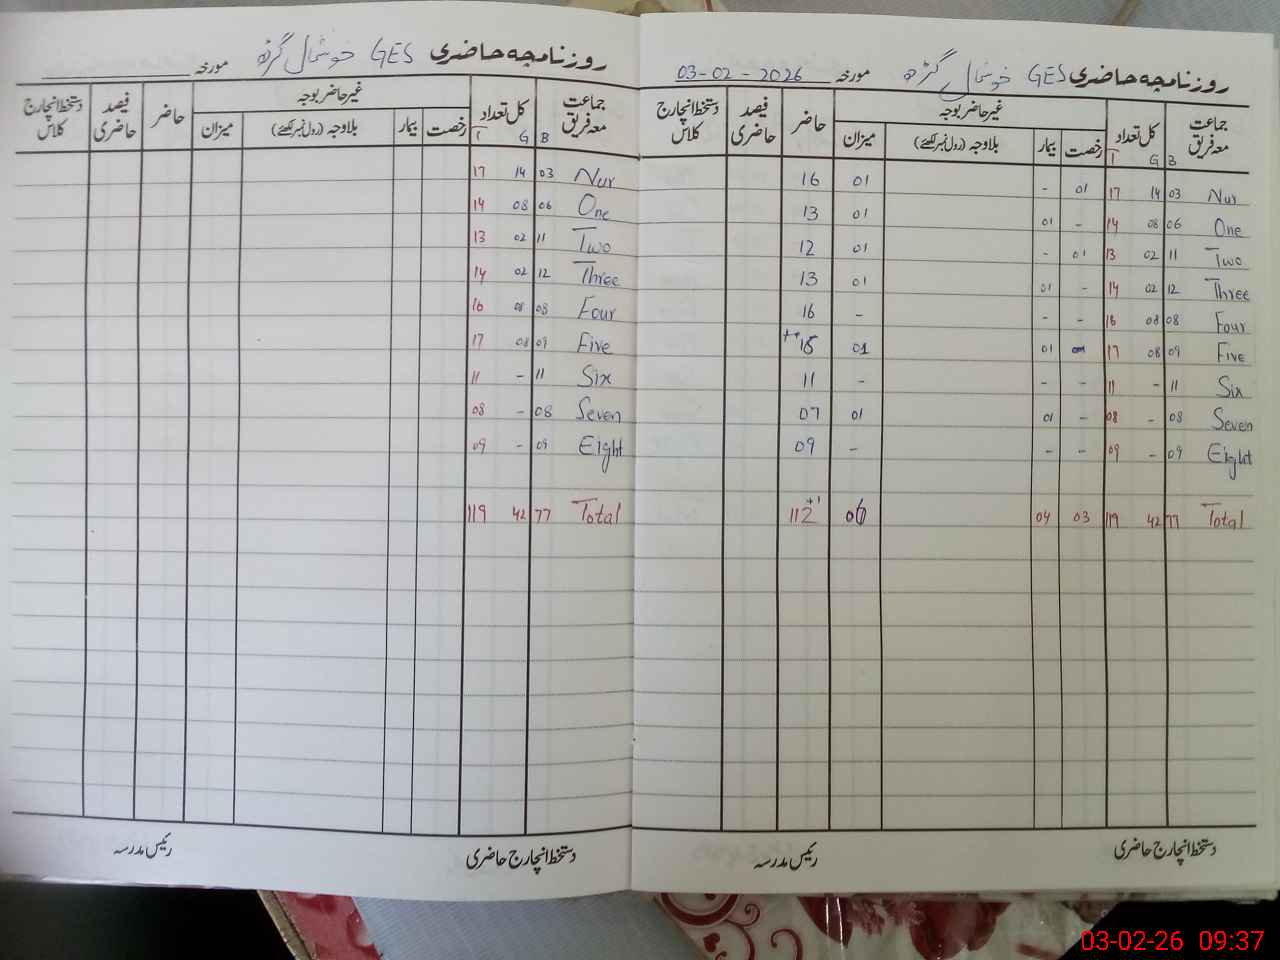 روزنامچہ حاضری GES خوشحال گڑھ مورخہ 03-02-2026
جماعت معہ فریق کل تعداد غیر حاضر بوجہ حاضر فیصد حاضری دستخط انچارج کلاس
B G T رخصت بیمار بلاوجہ (رول نمبر لکھئے) میزان
Nur 03 14 17 01 - 01 16
One 06 08 14 - 01 01 13
Two 11 02 13 01 - 01 12
Three 12 02 14 - 01 01 13
Four 08 08 16 - - - 16
Five 09 08 17 01 01
Six 11 - 11 - - - 11
Seven 08 - 08 - 01 01 07
Eight 09 - 09 - - - 09
Total 77 42 119 03 04 112 +1
دستخط انچارج حاضری رئیس مدرسہ
روزنامچہ حاضری GES خوشحال گڑھ مورخہ
جماعت معہ فریق کل تعداد غیر حاضر بوجہ حاضر فیصد حاضری دستخط انچارج کلاس
B G T رخصت بیمار بلاوجہ (رول نمبر لکھئے) میزان
Nur 03 14 17
One 06 08 14
Two 11 02 13
Three 12 02 14
Four 08 08 16
Five 09 08 17
Six 11 - 11
Seven 08 - 08
Eight 09 - 09
Total 77 42 119
دستخط انچارج حاضری رئیس مدرسہ
03-02-26 09:37